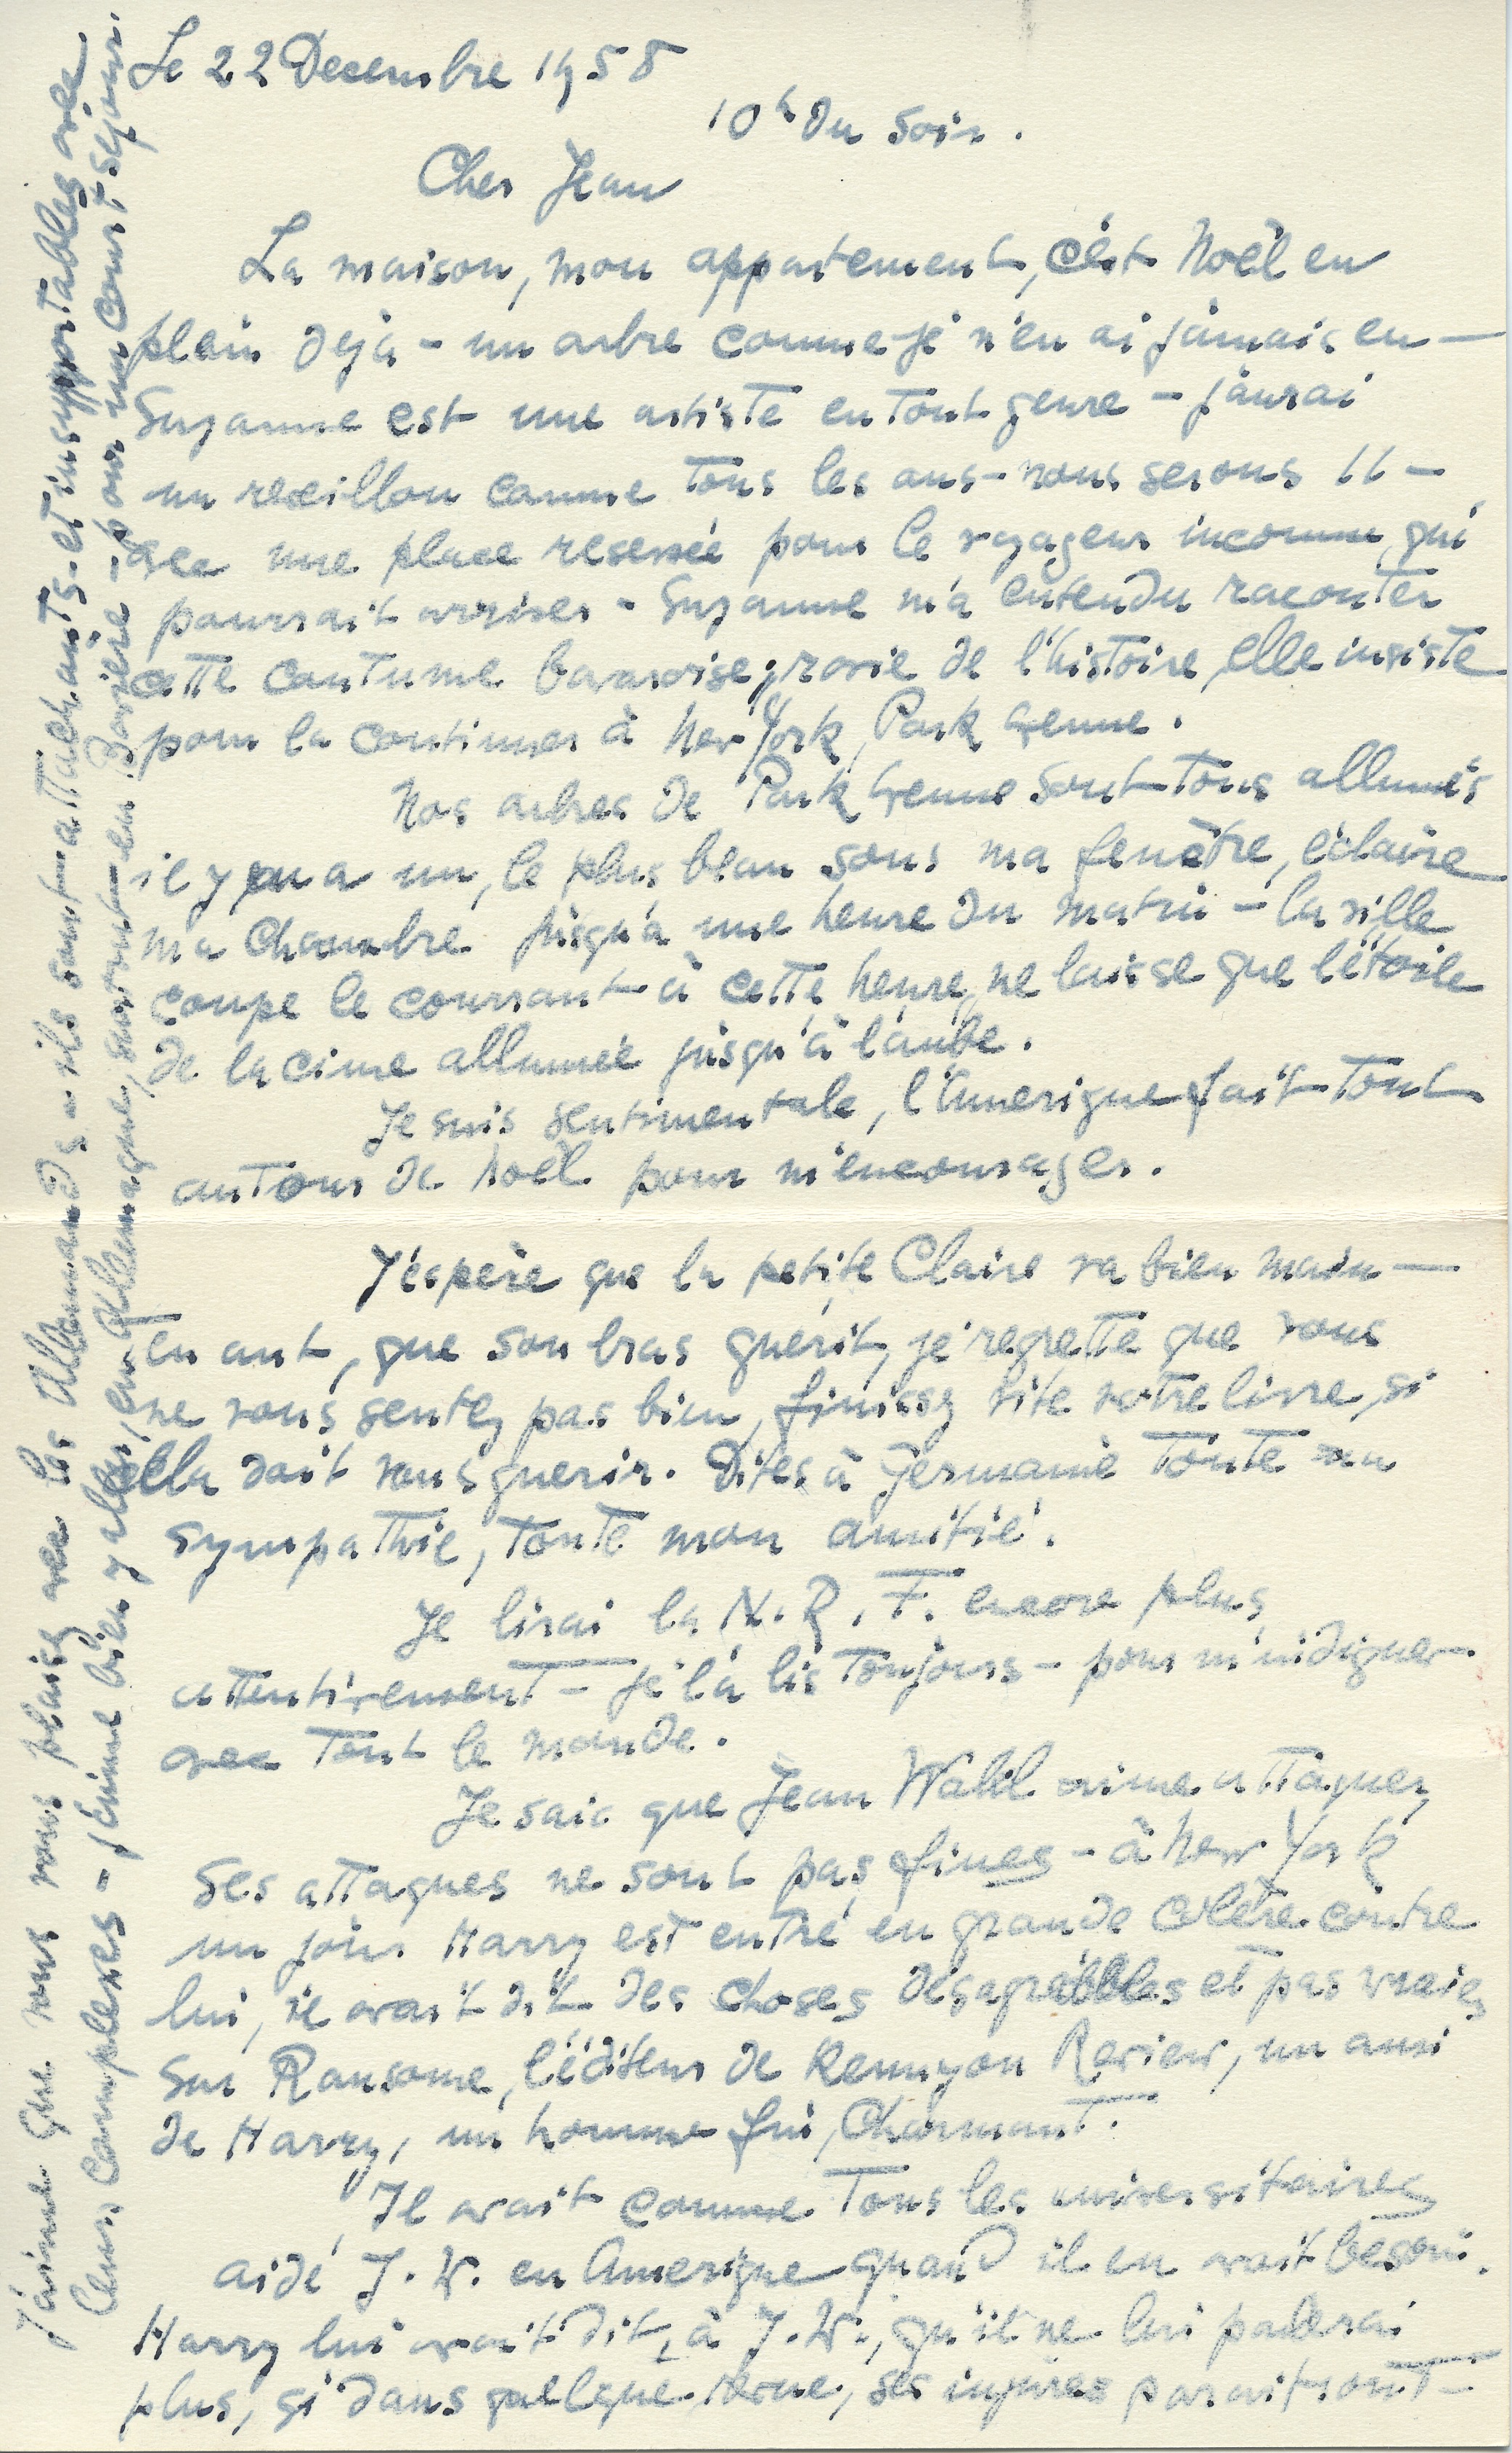 Le 22 Decembre 1958
10h du soir.
Cher Jean
La maison, mon appartement, c'est Noël en
plein dejà - un arbre comme je n'en ai jamais eu -
Suzanne est une artiste en tout genre - j'aurai
un reveillon comme tous les ans - nous serons 11 -
avec une place reservée pour le voyageur inconnu qui
pourrait arriver - Suzanne m'a entendu raconter
cette coutume bavaroise, ravie de l'histoire, elle insiste
pour la continuer à New York, Park Avenue.
Nos arbres de Park Avenue sont tous allumés
il y en a un, le plus beau sous ma fenêtre, éclaire
ma chambre jusqu'à une heure du matin - la ville
coupe le courrant à cette heure, ne laisse que l'étoile
de la cime allumée jusqu'à l'aube.
Je suis sentimentale, l'Amerique fait tout
autour de Noël pour m'encourager.
J'éspère que la petite Claire va bien main-
tenant, que son bras guerit, je regrette que vous
ne vous sentez pas bien, finissez vite votre livre, si
cela doit vous guerir. Dites à Germaine toute ma
sympathie, toute mon amitié.
Je lirai la N.R.F. encore plus
attentivement - je la lis toujours - pour m'indigner
avec tout le monde.
Je sais que Jean Wahl aime attaquer,
ses attaques ne sont pas fines - à New York
un jour Harry est entré en grande colère contre
lui, il avait dit des choses désagréables et pas vraies
sur Ransome, l'éditeur de Kennyon Review, un ami
de Harry, un homme fin, charmant.
Il avait comme tous les universitaires
aidé J. W. en Amerique quand il en avait besoin.
Harry lui avait dit, à J. W., qu'il ne lui parlerai
plus, si dans quelque revue, ses injures paraitront -
J'aime que vous vous plaisez avec les Allemands - ils sont attachants - et insupportables avec
leurs complexes - j'aime bien y aller, en Allemagne, surtout en Bavière - pour un court séjour.